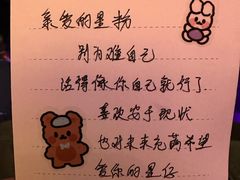 亲爱的星粉
别为难自己
活得像你自己就行了
喜欢安于现状
也对未来充满希望
爱你的星仔